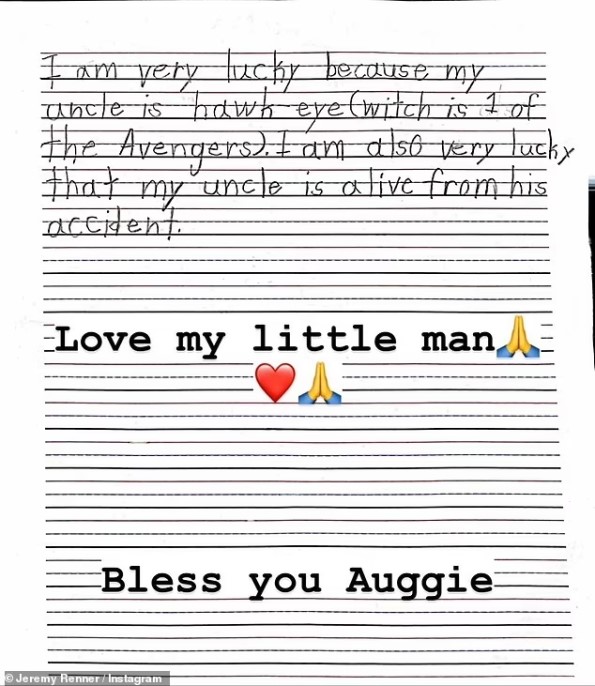 I am very lucky because my
uncle is hawk eye(witch is 1 of
the Avengers). I am also very lucky
that my uncle is alive from his
accident.
Love my little man🙏
❤️🙏
Bless you Auggie
© Jeremy Renner / Instagram